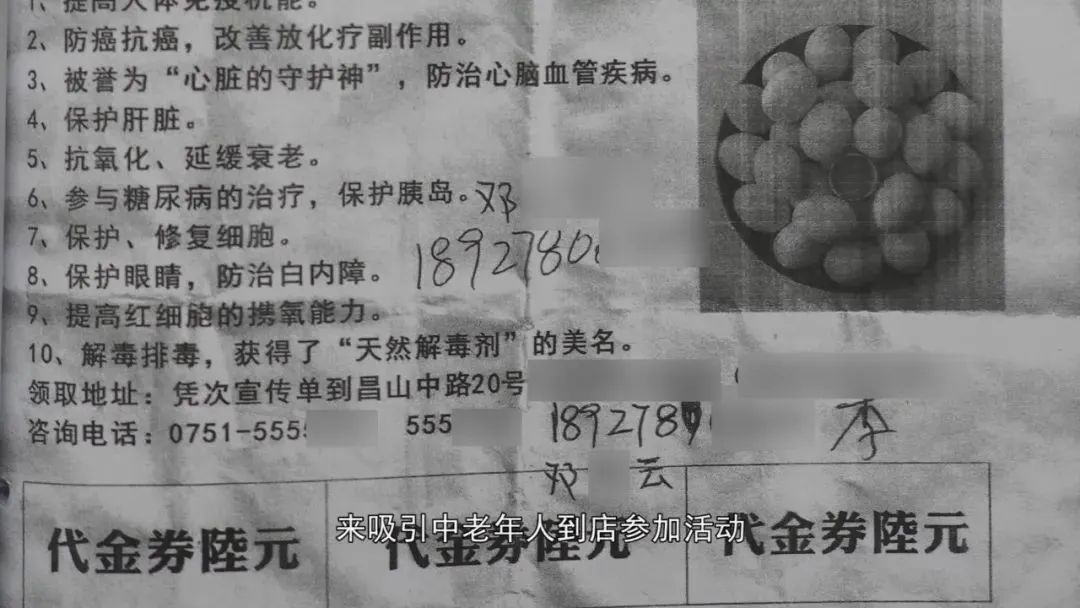 1、提高人体免疫机能。
2、防癌抗癌，改善放化疗副作用。
3、被誉为“心脏的守护神”，防治心脑血管疾病。
4、保护肝脏。
5、抗氧化、延缓衰老。
6、参与糖尿病的治疗，保护胰岛。邓
7、保护、修复细胞。
1892780
8、保护眼睛，防治白内障。
9、提高红细胞的携氧能力。
10、解毒排毒，获得了“天然解毒剂”的美名。
领取地址：凭次宣传单到昌山中路20号
咨询电话：0751-555 555
189278 李
邓 云
代金券陸元 代金券陸元 代金券陸元
来吸引中老年人到店参加活动